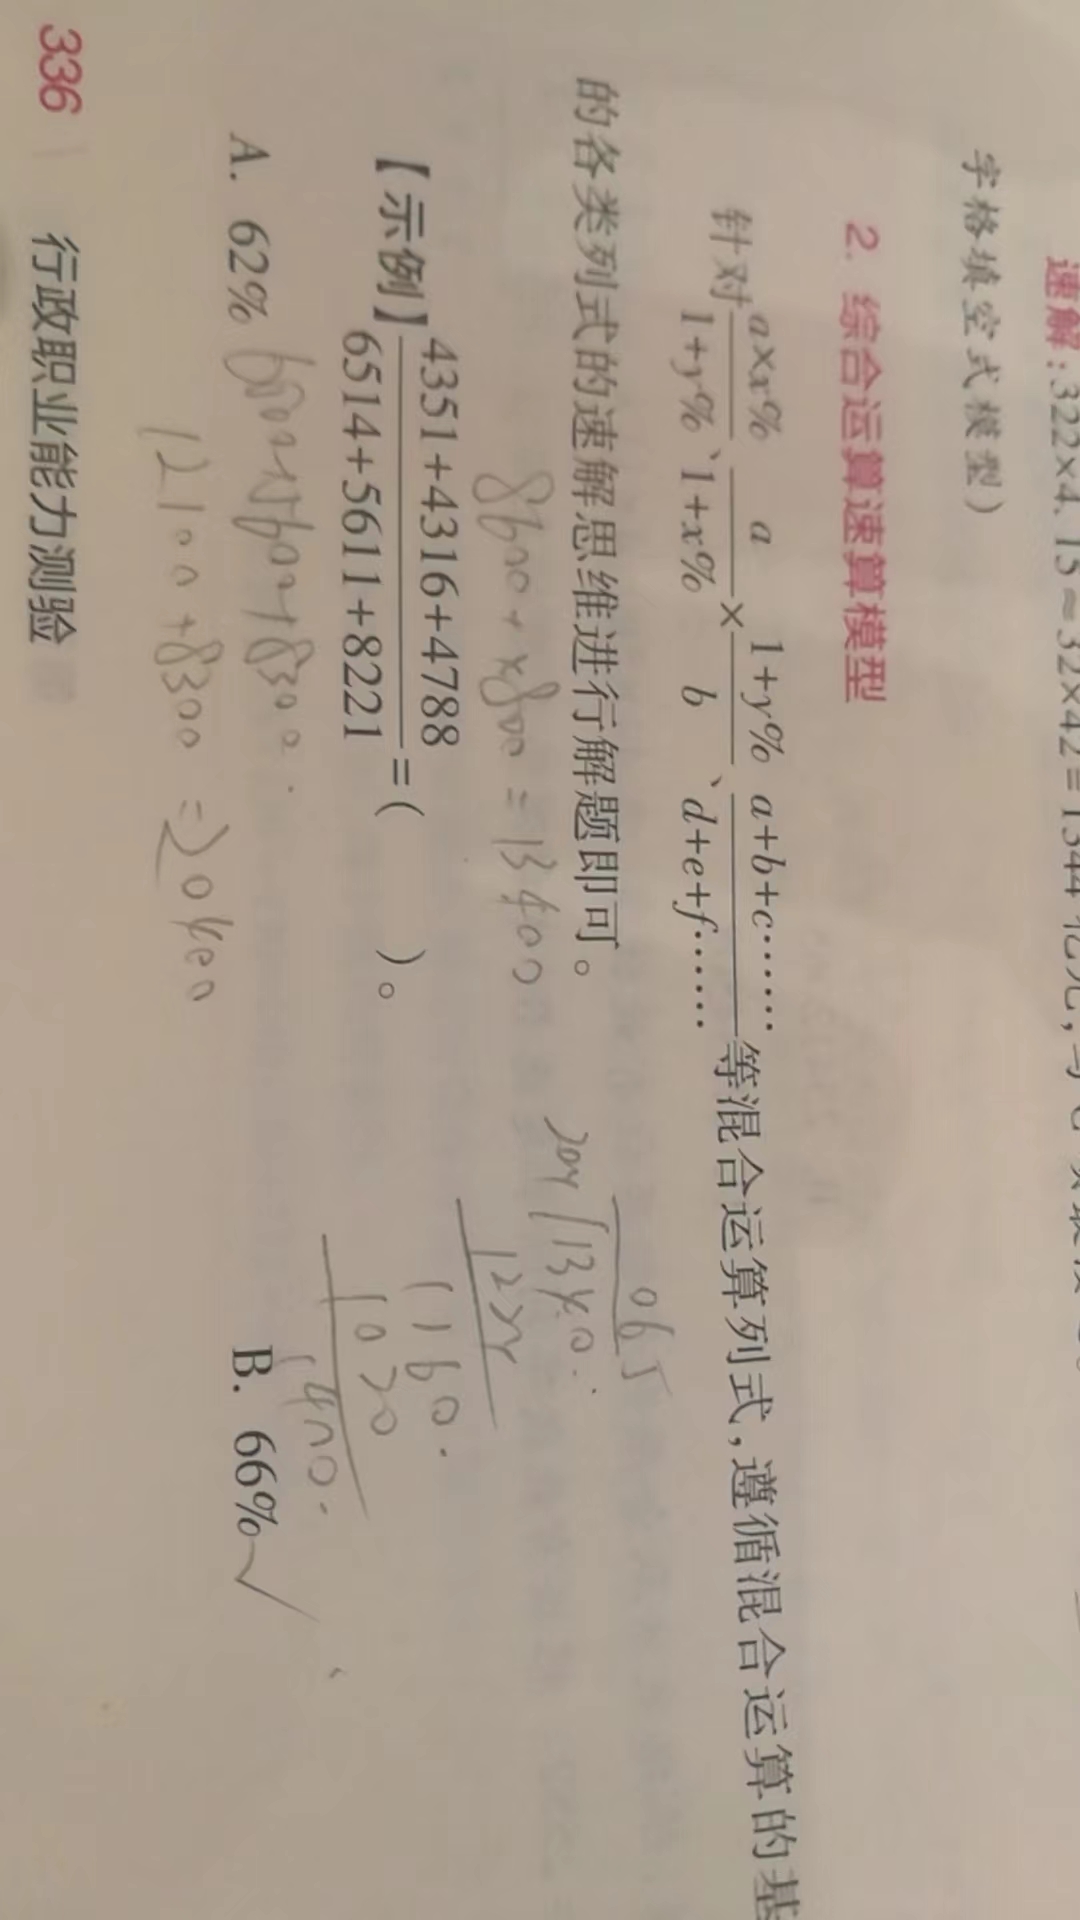 速解：322×4.15≈32×42=1344
字格填空式模型）
2. 综合运算速算模型
针对 a×x%/1+y%、a/1+x%×1+y%/b、a+b+c……/d+e+f……等混合运算列式，遵循混合运算的基
的各类列式的速解思维进行解题即可。
8600+4800=13400
204 1340.
065
1224
1160.
1020
1400.
【示例】4351+4316+4788/6514+5611+8221=(    )。
A. 62%
B. 66%
6500+5600+8300.
12100+8300=20400
336 行政职业能力测验